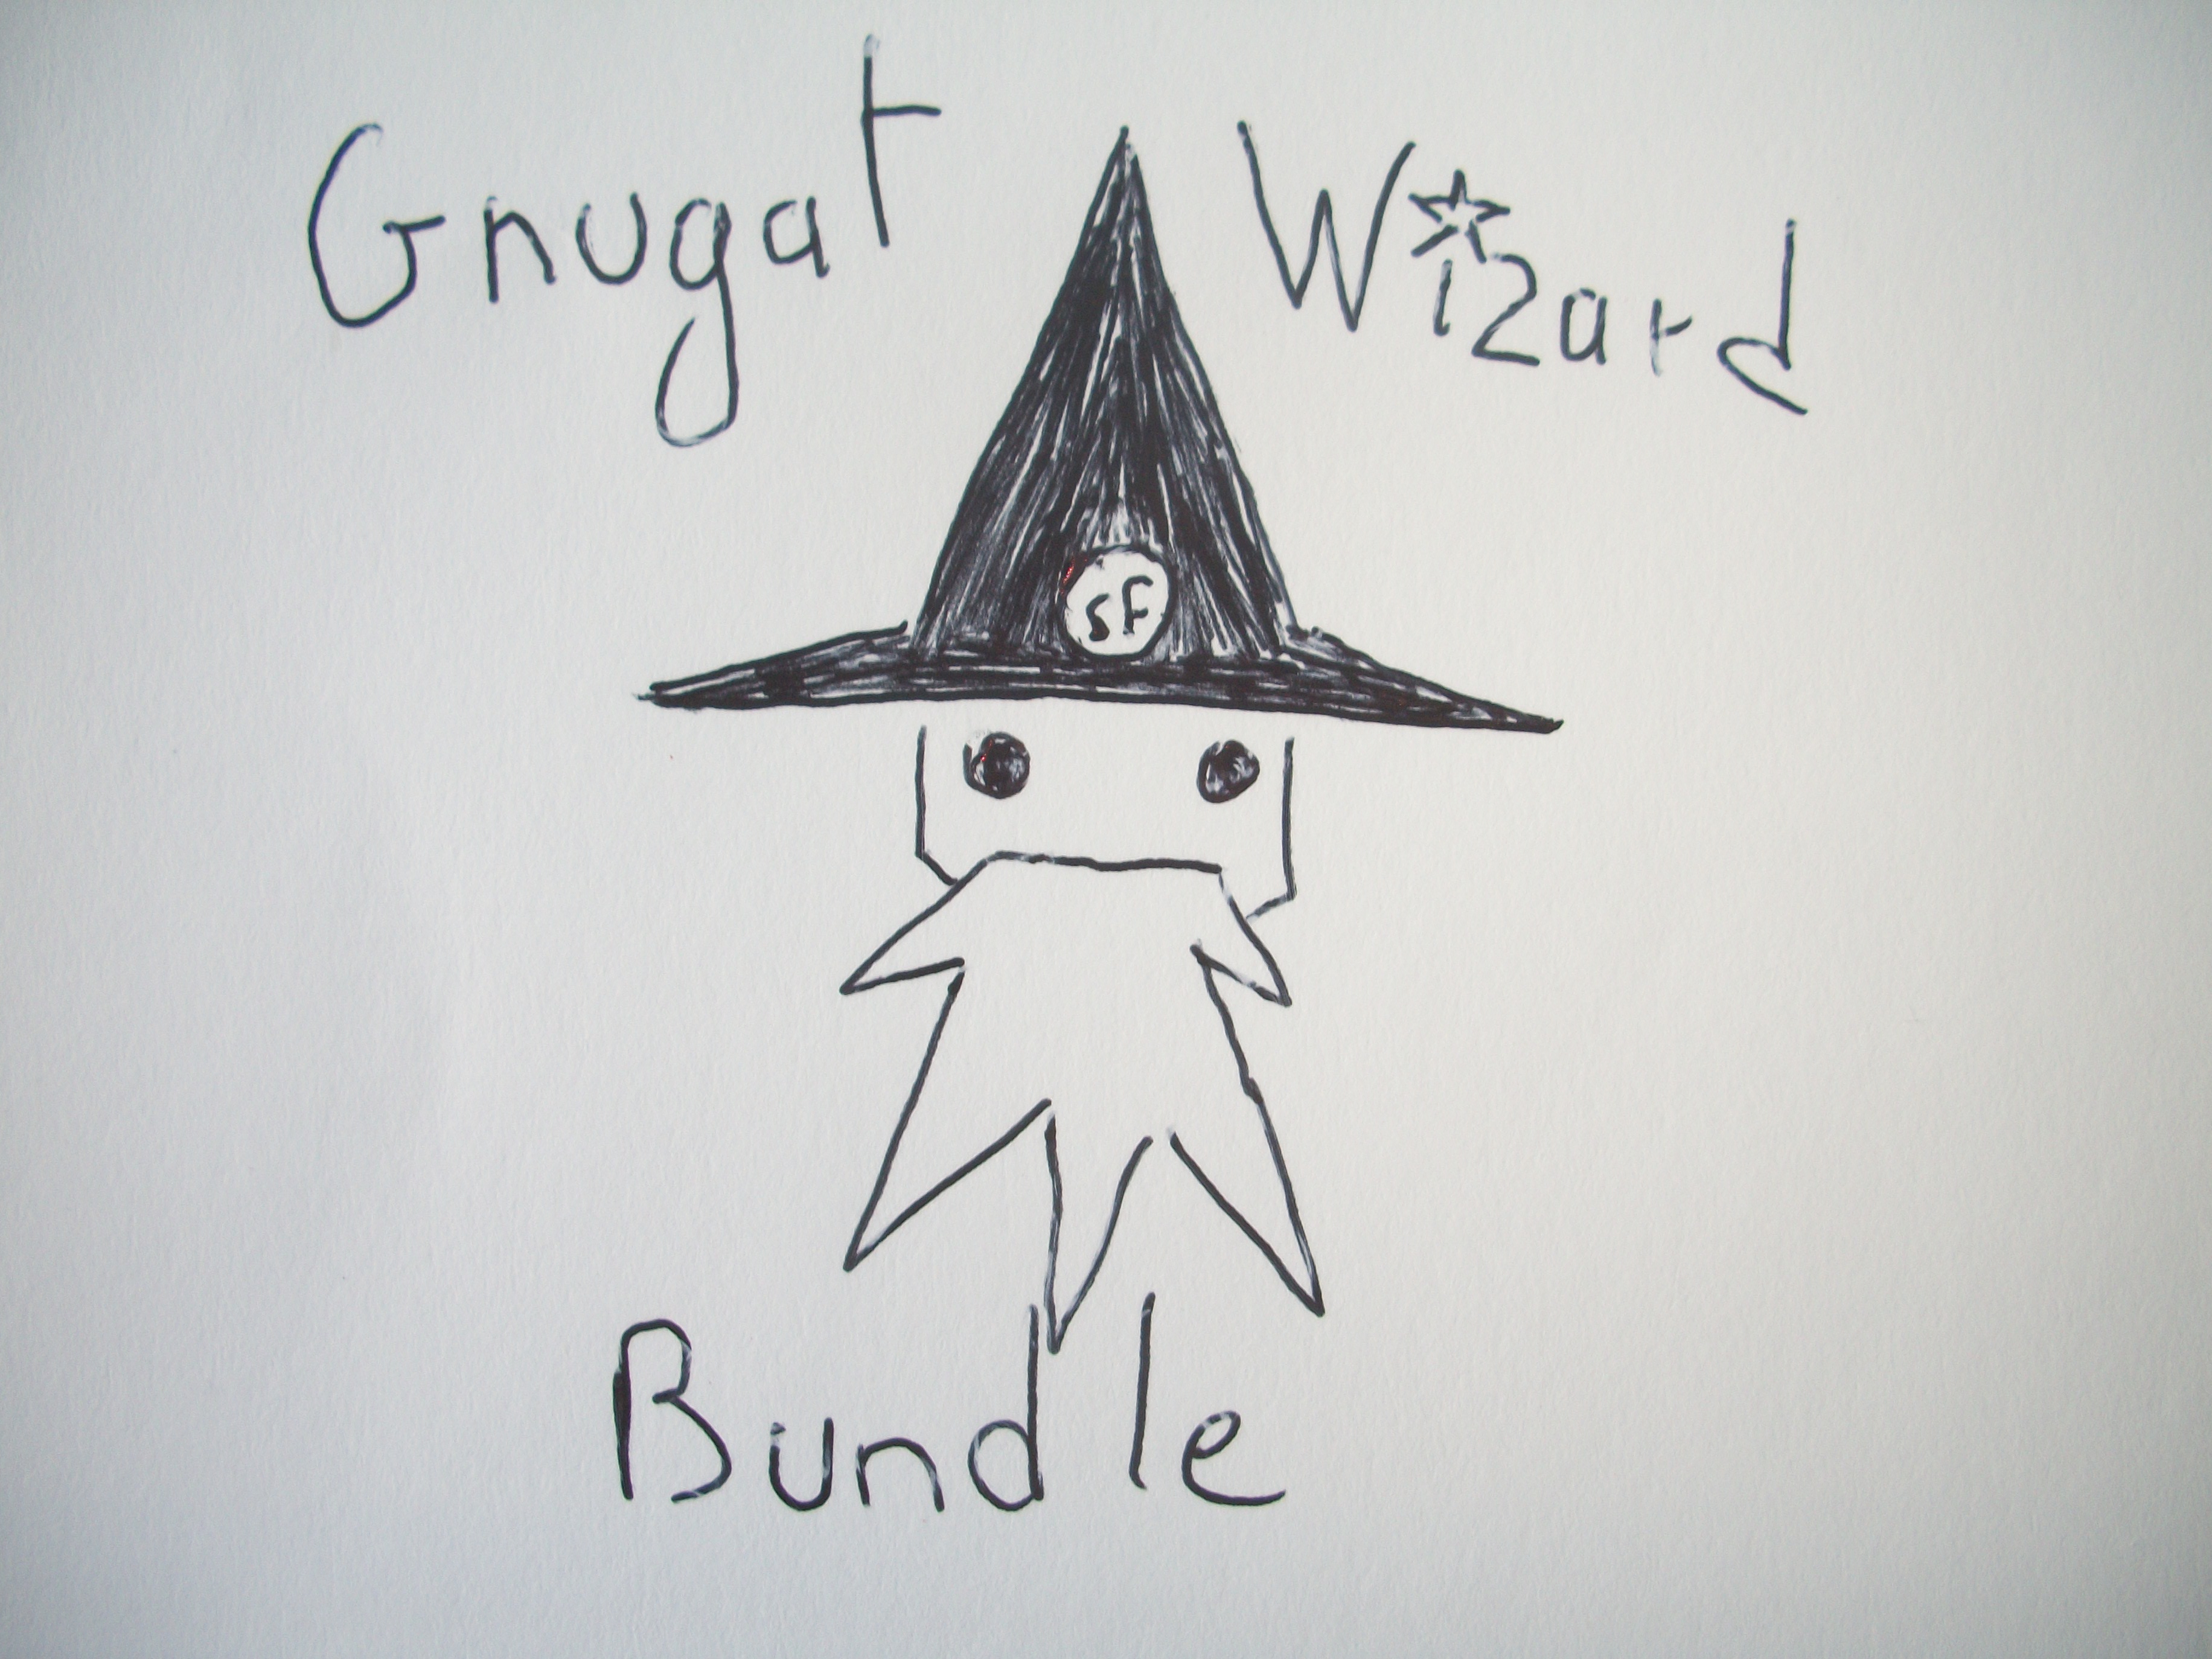 Gnugat Wizard
sf
Bundle